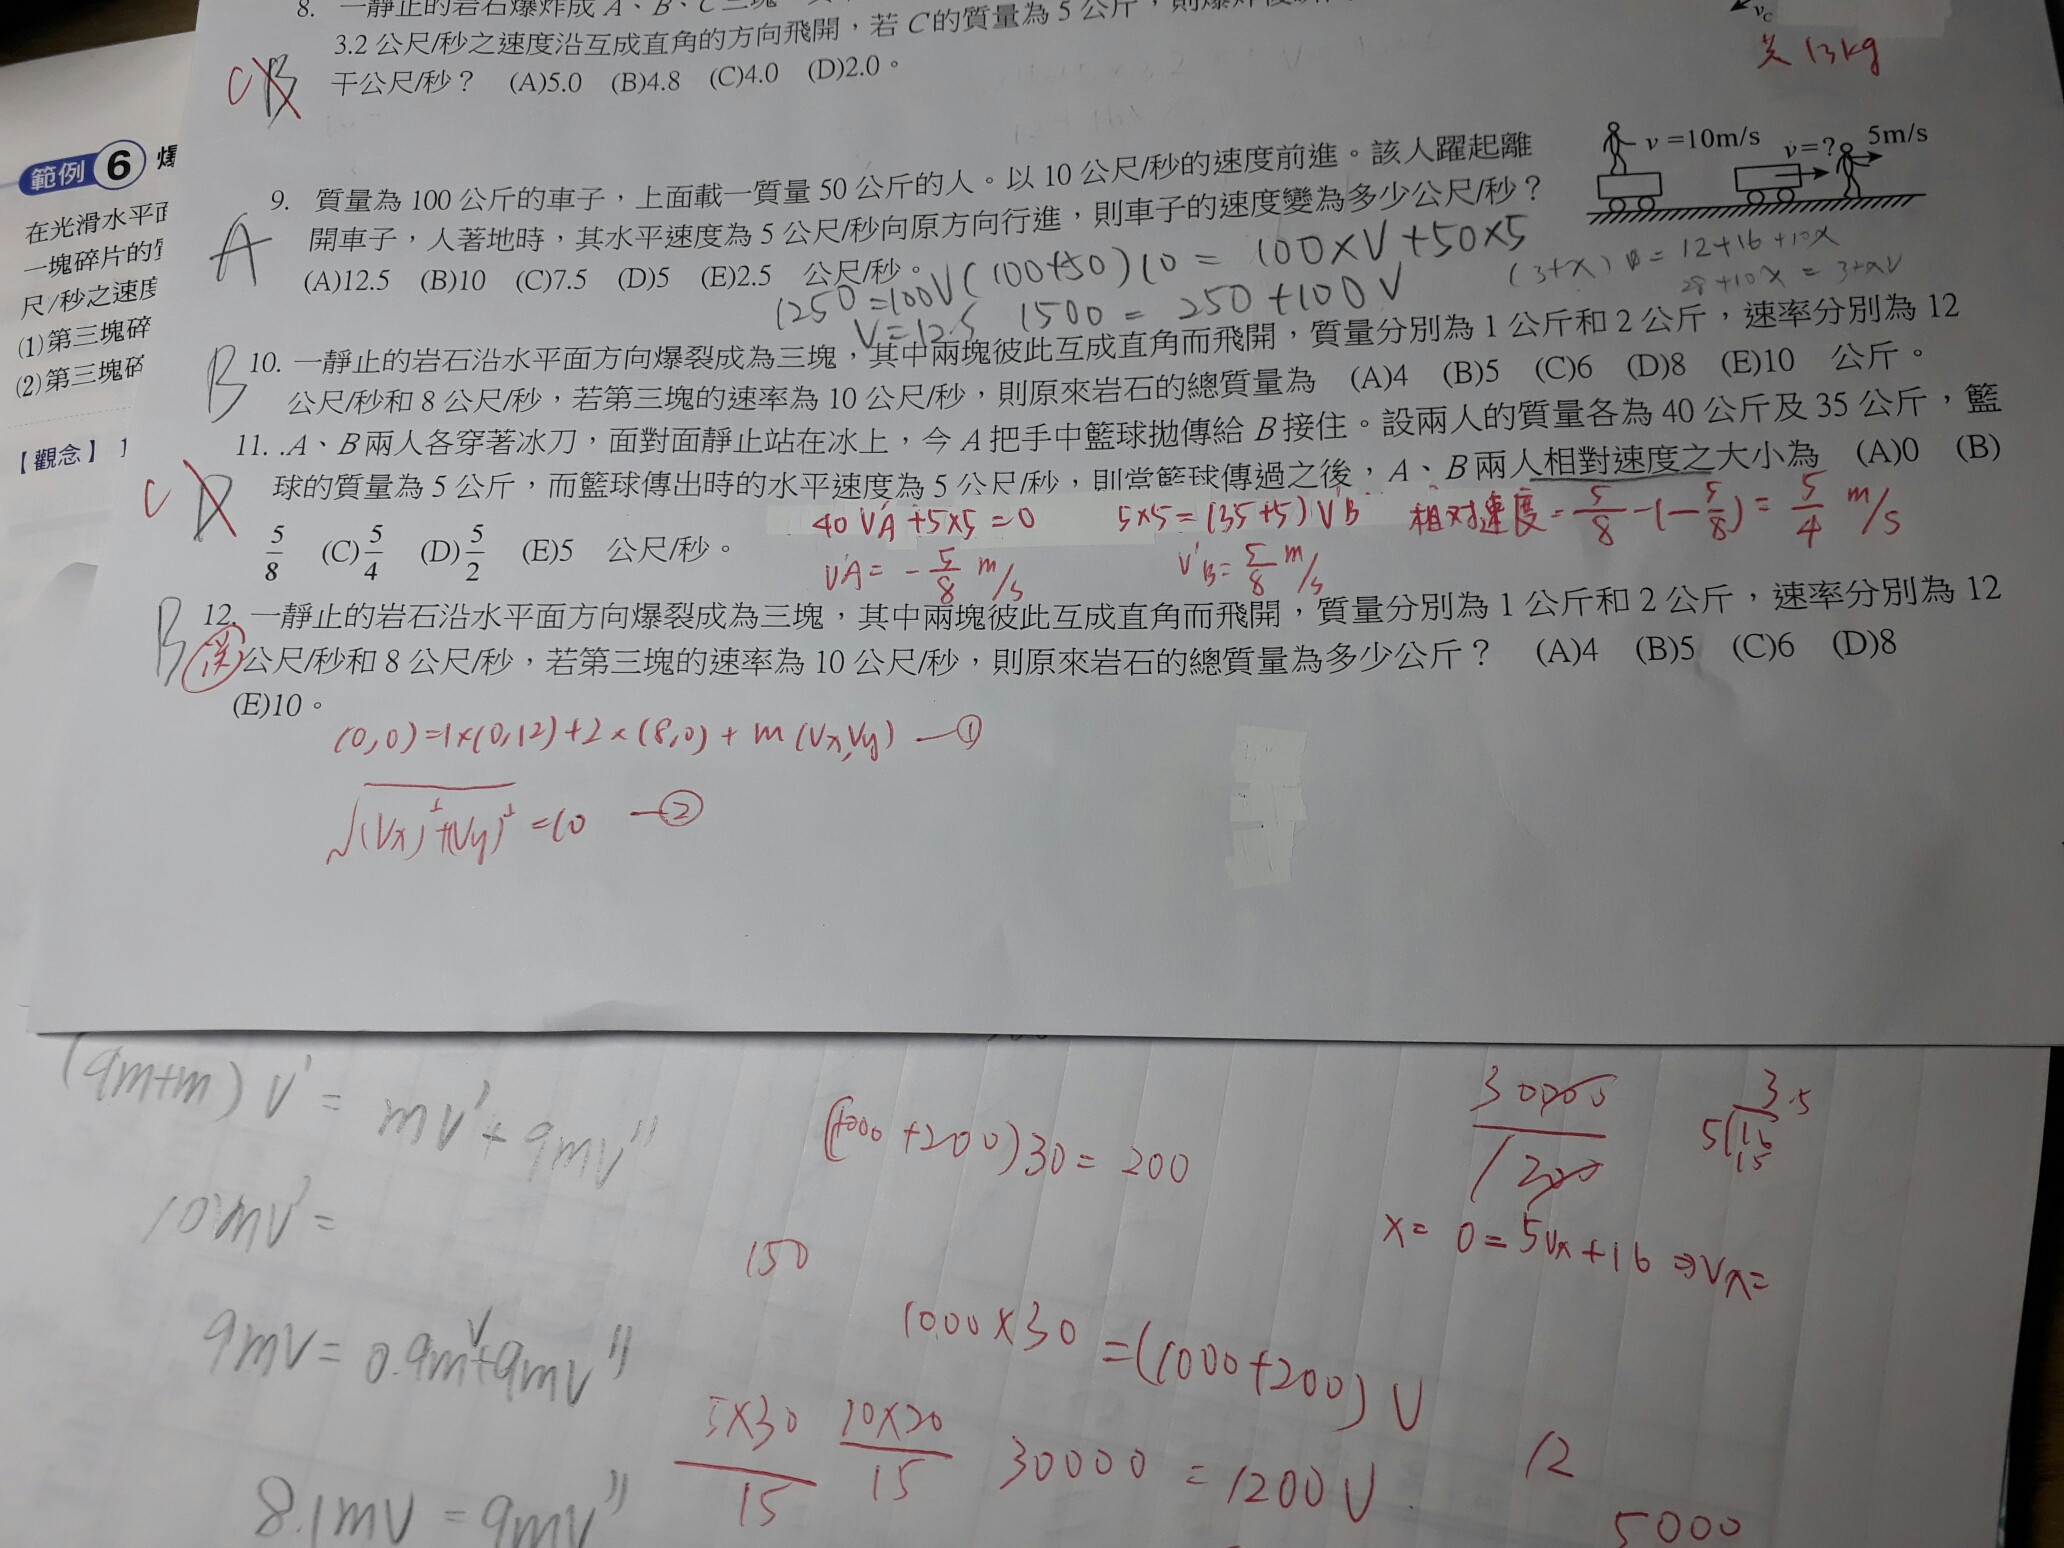 3.2公尺/秒之速度沿互成直角的方向飛開，若C的質量為5公斤，
干公尺/秒？ (A)5.0 (B)4.8 (C)4.0 (D)2.0。
C B
vC
共 13kg
範例 6
在光滑水平面
一塊碎片的質
尺/秒之速度
(1)第三塊碎
(2)第三塊碎
【觀念】 1
9. 質量為100公斤的車子，上面載一質量50公斤的人。以10公尺/秒的速度前進。該人躍起離
開車子，人著地時，其水平速度為5公尺/秒向原方向行進，則車子的速度變為多少公尺/秒？
(A)12.5 (B)10 (C)7.5 (D)5 (E)2.5 公尺/秒。
A
v=10m/s v=? 5m/s
(100+50)10 = 100×V+50×5
1250=100V 1500 = 250+100V
V=12.5
= 12+16+10x
28+10x = 3+xV
B
10. 一靜止的岩石沿水平面方向爆裂成為三塊，其中兩塊彼此互成直角而飛開，質量分別為1公斤和2公斤，速率分別為12
公尺/秒和8公尺/秒，若第三塊的速率為10公尺/秒，則原來岩石的總質量為 (A)4 (B)5 (C)6 (D)8 (E)10 公斤。
C D
11. .A、B兩人各穿著冰刀，面對面靜止站在冰上，今A把手中籃球拋傳給B接住。設兩人的質量各為40公斤及35公斤，籃
球的質量為5公斤，而籃球傳出時的水平速度為5公尺/秒，則當籃球傳過之後，A、B兩人相對速度之大小為 (A)0 (B)
5/8 (C)5/4 (D)5/2 (E)5 公尺/秒。
40 VA+5×5=0 5×5=(35+5)V'B 相对速度=5/8-(-5/8)=5/4 m/s
VA=-5/8 m/s V'B=5/8 m/s
B
12. 一靜止的岩石沿水平面方向爆裂成為三塊，其中兩塊彼此互成直角而飛開，質量分別為1公斤和2公斤，速率分別為12
公尺/秒和8公尺/秒，若第三塊的速率為10公尺/秒，則原來岩石的總質量為多少公斤？ (A)4 (B)5 (C)6 (D)8
(E)10。
(0,0)=1×(0,12)+2×(8,0)+m(Vx,Vy) —①
√(Vx)²+(Vy)² =10 —②
(9m+m)V'= mV'+9mV''
10mV'=
9mV=0.9mV+9mV''
8.1mV=9mV''
(1000+200)30=200
150
1000×30=(1000+200)V
5×30/15 10×20/15 30000=1200V
30000/1200
x= 0=5Vx+16⇒Vx=
12
5000